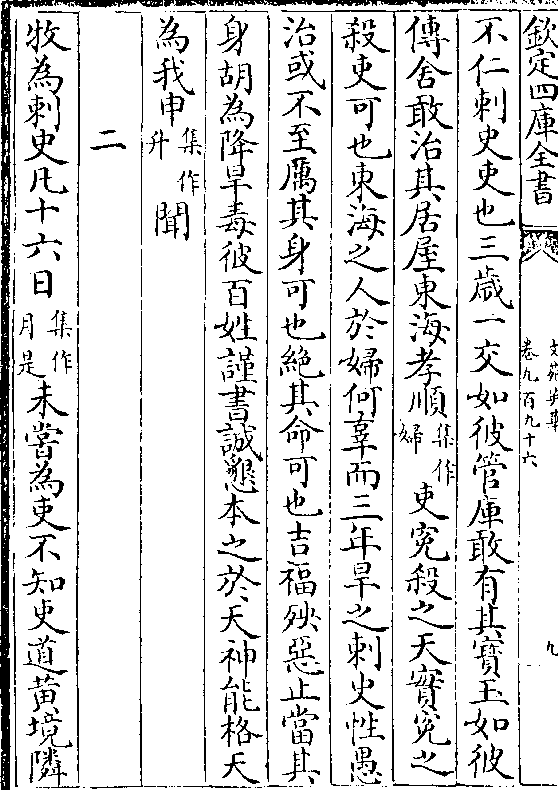 欽定四庫全書
文苑英華
卷九百九十六
九
不仁刺史吏也三歲一交如彼管庫敢有其寶玉如彼
傳舍敢治其居屋東海孝順集作婦吏冤殺之天實冤之
殺吏可也東海之人於婦何辜而三年旱之刺史性愚
治或不至厲其身可也絶其命可也吉福殃惡止當其
身胡為降旱毒彼百姓謹書誠懇本之於天神能格天
為我申集作升聞
二
牧為刺史凡十六日集作月是未嘗為吏不知吏道黄境隣